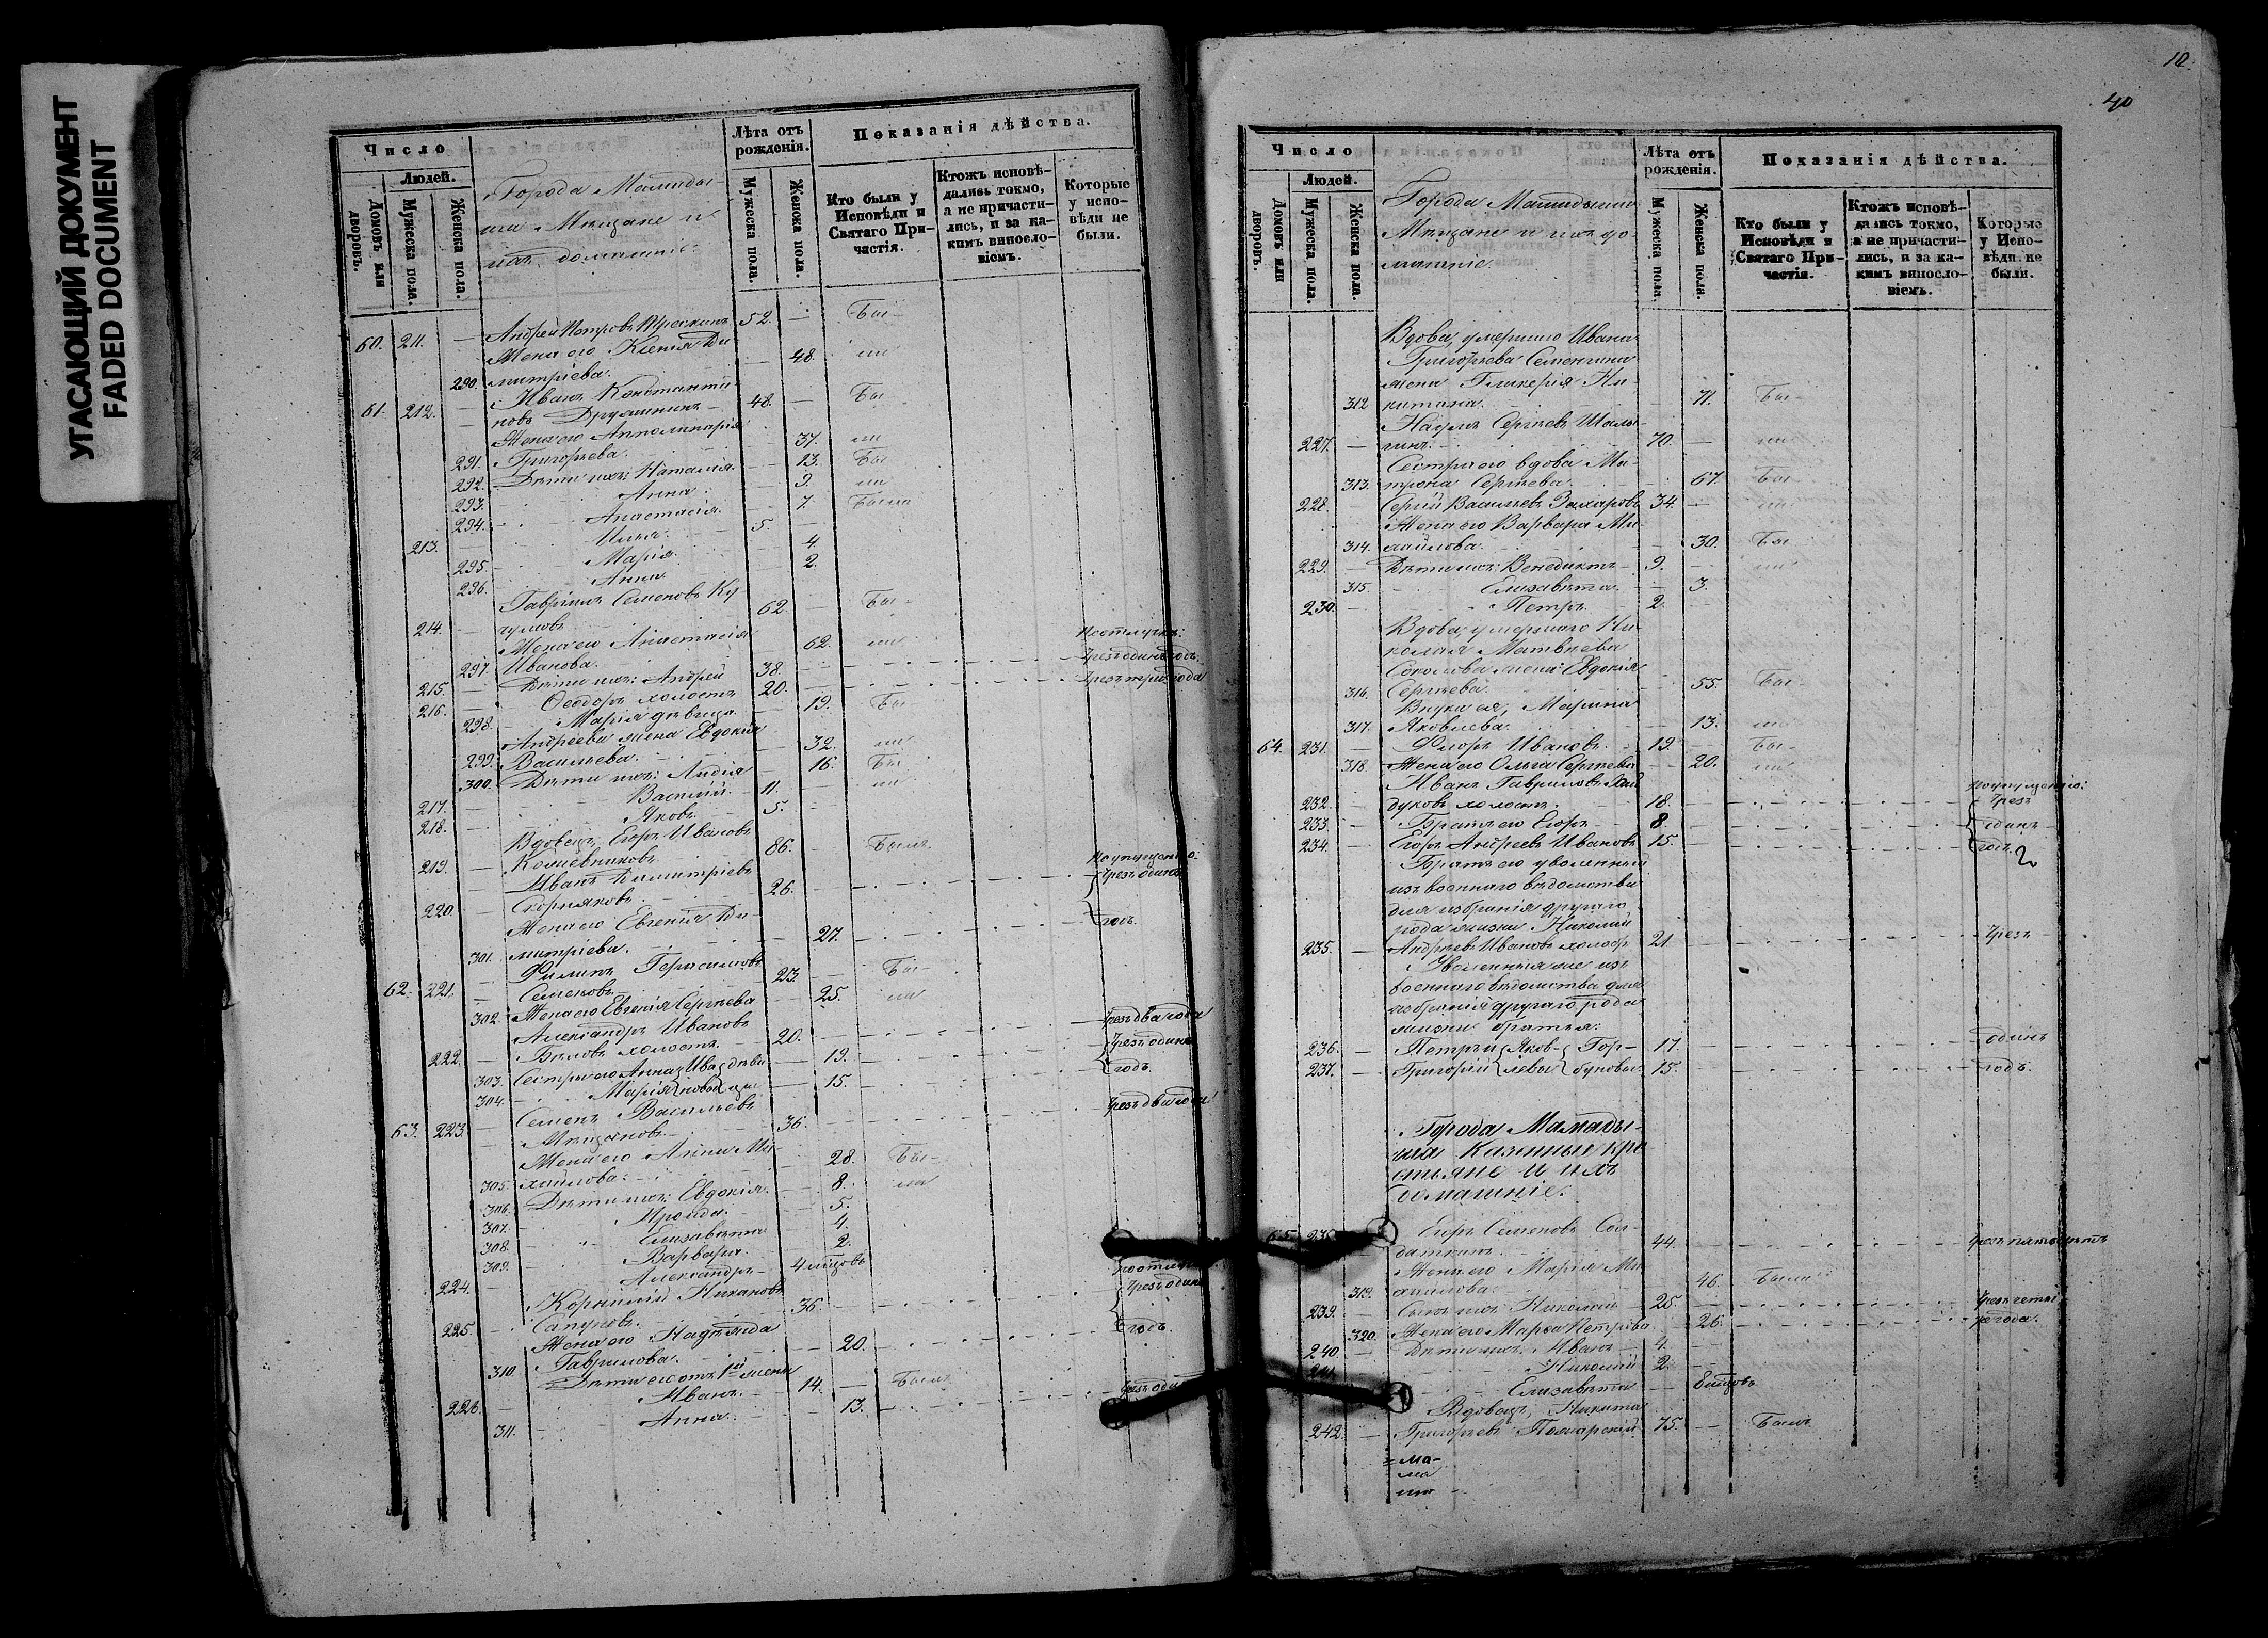 УГАСАЮЩИЙ ДОКУМЕНТ
FADED DOCUMENT
Число
Людей.
Домовъ или дворовъ.
Мужеска пола.
Женска пола.
Города Мамадыша Мѣщане и ихъ домашніе:
Лѣта отъ рожденія.
Мужеска пола.
Женска пола.
Показанія дѣйства.
Кто были у Исповѣди и Святаго Причастія.
Ктожъ исповѣдались токмо, а не причастились, и за какимъ винословіемъ.
Которые у исповѣди не были.
60. 211. — Андрей Петровъ 52. — Бы-
Жена его Ксенія Ди-
290. митріева. — 48. ли
61. 212. — Иванъ Константи-
новъ Дружининъ — 48. — Бы-
Жена его Апполинарія
291. Григорьева. — 37. ли
292. Дѣти ихъ: Наталія. — 13. Бы-
293. Анна. — 9. ли
294. Анастасія. — 7. Была
213. — Илья. — 5. —
295. Марія. — 4.
296. Анна. — 2.
Гавріилъ Семеновъ Ку-
214. — 62 — Бы-
Жена его Анастасія
297. Иванова. — 62. ли По отлучкѣ:
215. — Дѣти ихъ: Андрей 38. — Чрезъ одинъ годъ.
216. — Ѳеодоръ холостъ 20. — Чрезъ три года
298. Марія дѣвица. — 19. Бы-
Андреева жена Евдокія
299. Васильева. — 32. ли
300. Дѣти ихъ: Лидія — 16. Бы-
217. — Василій. — 11. — ли
218. — Яковъ — 5. —
Вдовецъ, Егоръ Ивановъ
219. — 86. — Былъ
Иванъ Димитріевъ По упущенію:
220. — Скорняковъ. 26. — Чрезъ одинъ
Жена его Евгенія Ди-
301. митріева. — 27. годъ.
Филипъ Герасимовъ
62. 221. — Семеновъ. — 23. — Бы-
302. Жена его Евгенія Сергѣева — 25. ли
Александръ Ивановъ
222. — Бѣловъ холостъ. — 20. — Чрезъ два года
303. Сестры его Анна Ива- дѣви- — 19. Чрезъ одинъ
304. Марія новы цы — 15. годъ.
Семенъ Васильевъ
63. 223 — Мѣщановъ. — 36. — Чрезъ два года
Жена его Анна Ми-
305. хайлова: — 28. Бы-
306. Дѣти ихъ: Евдокія. — 8. ли
307. — 5.
308. Елизавѣта — 4.
309. Варвара. — 2.
224. — Александръ — 4 мѣсцовъ
Корнилій
225. — Сапуновъ. 36. — Чрезъ одинъ
Жена его Надежда
310. Гаврилова. — 20. годъ.
Дѣти его отъ 1й жены
226. — Иванъ. — 14. — Былъ
311. Анна. — 13. Чрезъ
10.
40
Число
Людей.
Домовъ или дворовъ.
Мужеска пола.
Женска пола.
Города Мамадыша Мѣщане и ихъ домашніе.
Лѣта отъ рожденія.
Мужеска пола.
Женска пола.
Показанія дѣйства.
Кто были у Исповѣди и Святаго Причастія.
Ктожъ исповѣдались токмо, а не причастились, и за какимъ винословіемъ.
Которые у Исповѣди не были.
Вдова, умершаго Ивана
Григорьева Семенина
жена Гликерія Ни-
312 китина. — 71. Бы-
Наумъ Сергѣевъ
227. — 70. — ли
Сестра его вдова Ма-
313. трона Сергѣева. — 67. Бы-
228. — Сергій Васильевъ Захаровъ 34. — ли
Жена его Варвара Ми-
314. хайлова. — 30. Бы-
229. — Дѣти ихъ: Венедиктъ 9. — ли
315. Елизавѣта. — 3.
230. — Петръ. 2. —
Вдова, умершаго Ни-
колая Матвѣева
Соколова жена Евдокія
316. Сергѣева. — 55. Бы-
Внука ея, Марина
317. Яковлева. — 13. ли
64. 231. — Флоръ Ивановъ. — 19. — Бы-
318. Жена его Ольга Сергѣева — 20. ли
Иванъ Гавриловъ Гай- По упущенію:
232. — дуковъ холостъ. — 18. — Чрезъ
233. — Братъ его Егоръ — 8. — одинъ
234. — Егоръ Андреевъ Ивановъ 15. — годъ. 2
Братъ его уволенный
изъ военнаго вѣдомства
для избранія другаго
рода жизни Николай
235. — Андреевъ Ивановъ холостъ 21. — Чрезъ
Уволенные же изъ
военнаго вѣдомства для
избранія другаго рода
жизни братья:
236. — Петръ и Яков- Гор- 17. — одинъ
237. — Григорій левы буновы. 15. — годъ.
Города Мамады-
ша Казенные кре-
стьяне и ихъ
домашніе.
65. 238. Егоръ Семеновъ Сол-
даткинъ. — 44. — Чрезъ пять лѣтъ
Жена его Марія Ми-
319. хайлова. — 46. Была
239. — Сынъ ихъ Николай — 25. — Чрезъ четы-
320. Жена его Марѳа Петрова. — 26. ре года.
240. — Дѣти ихъ: Иванъ — 4. —
241. Николай 2. —
Елизавѣта — 8 мѣсцовъ
Вдовецъ, Никита
242. — Григорьевъ Пожарскій 75. — Былъ